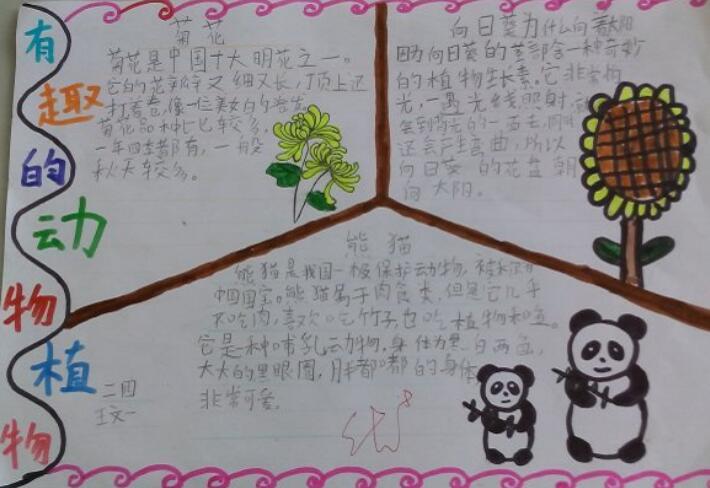 有趣的动物植物
菊花
菊花是中国十大明花之一。
它的花瓣又细又长，顶上还
打着卷，像一位美女的卷发。
菊花品种比较多，
一年四季都有，一般
秋天较多。
向日葵为什么向着太阳
因为向日葵的茎部含一种奇妙
的植物生长素。它非常怕
光，一遇光线照射，
会到背光的一面去，同时
还会产生弯曲，所以
向日葵的花盘朝
向太阳。
熊猫
熊猫是我国一极保护动物，被称为
中国国宝。熊猫属于肉食类，但是它几乎
不吃肉，喜欢吃竹子，也吃植物和鱼。
它是种哺乳动物，身体为黑白两色，
大大的黑眼圈，胖都嘟的身体
非常可爱。
二四
王文一
优